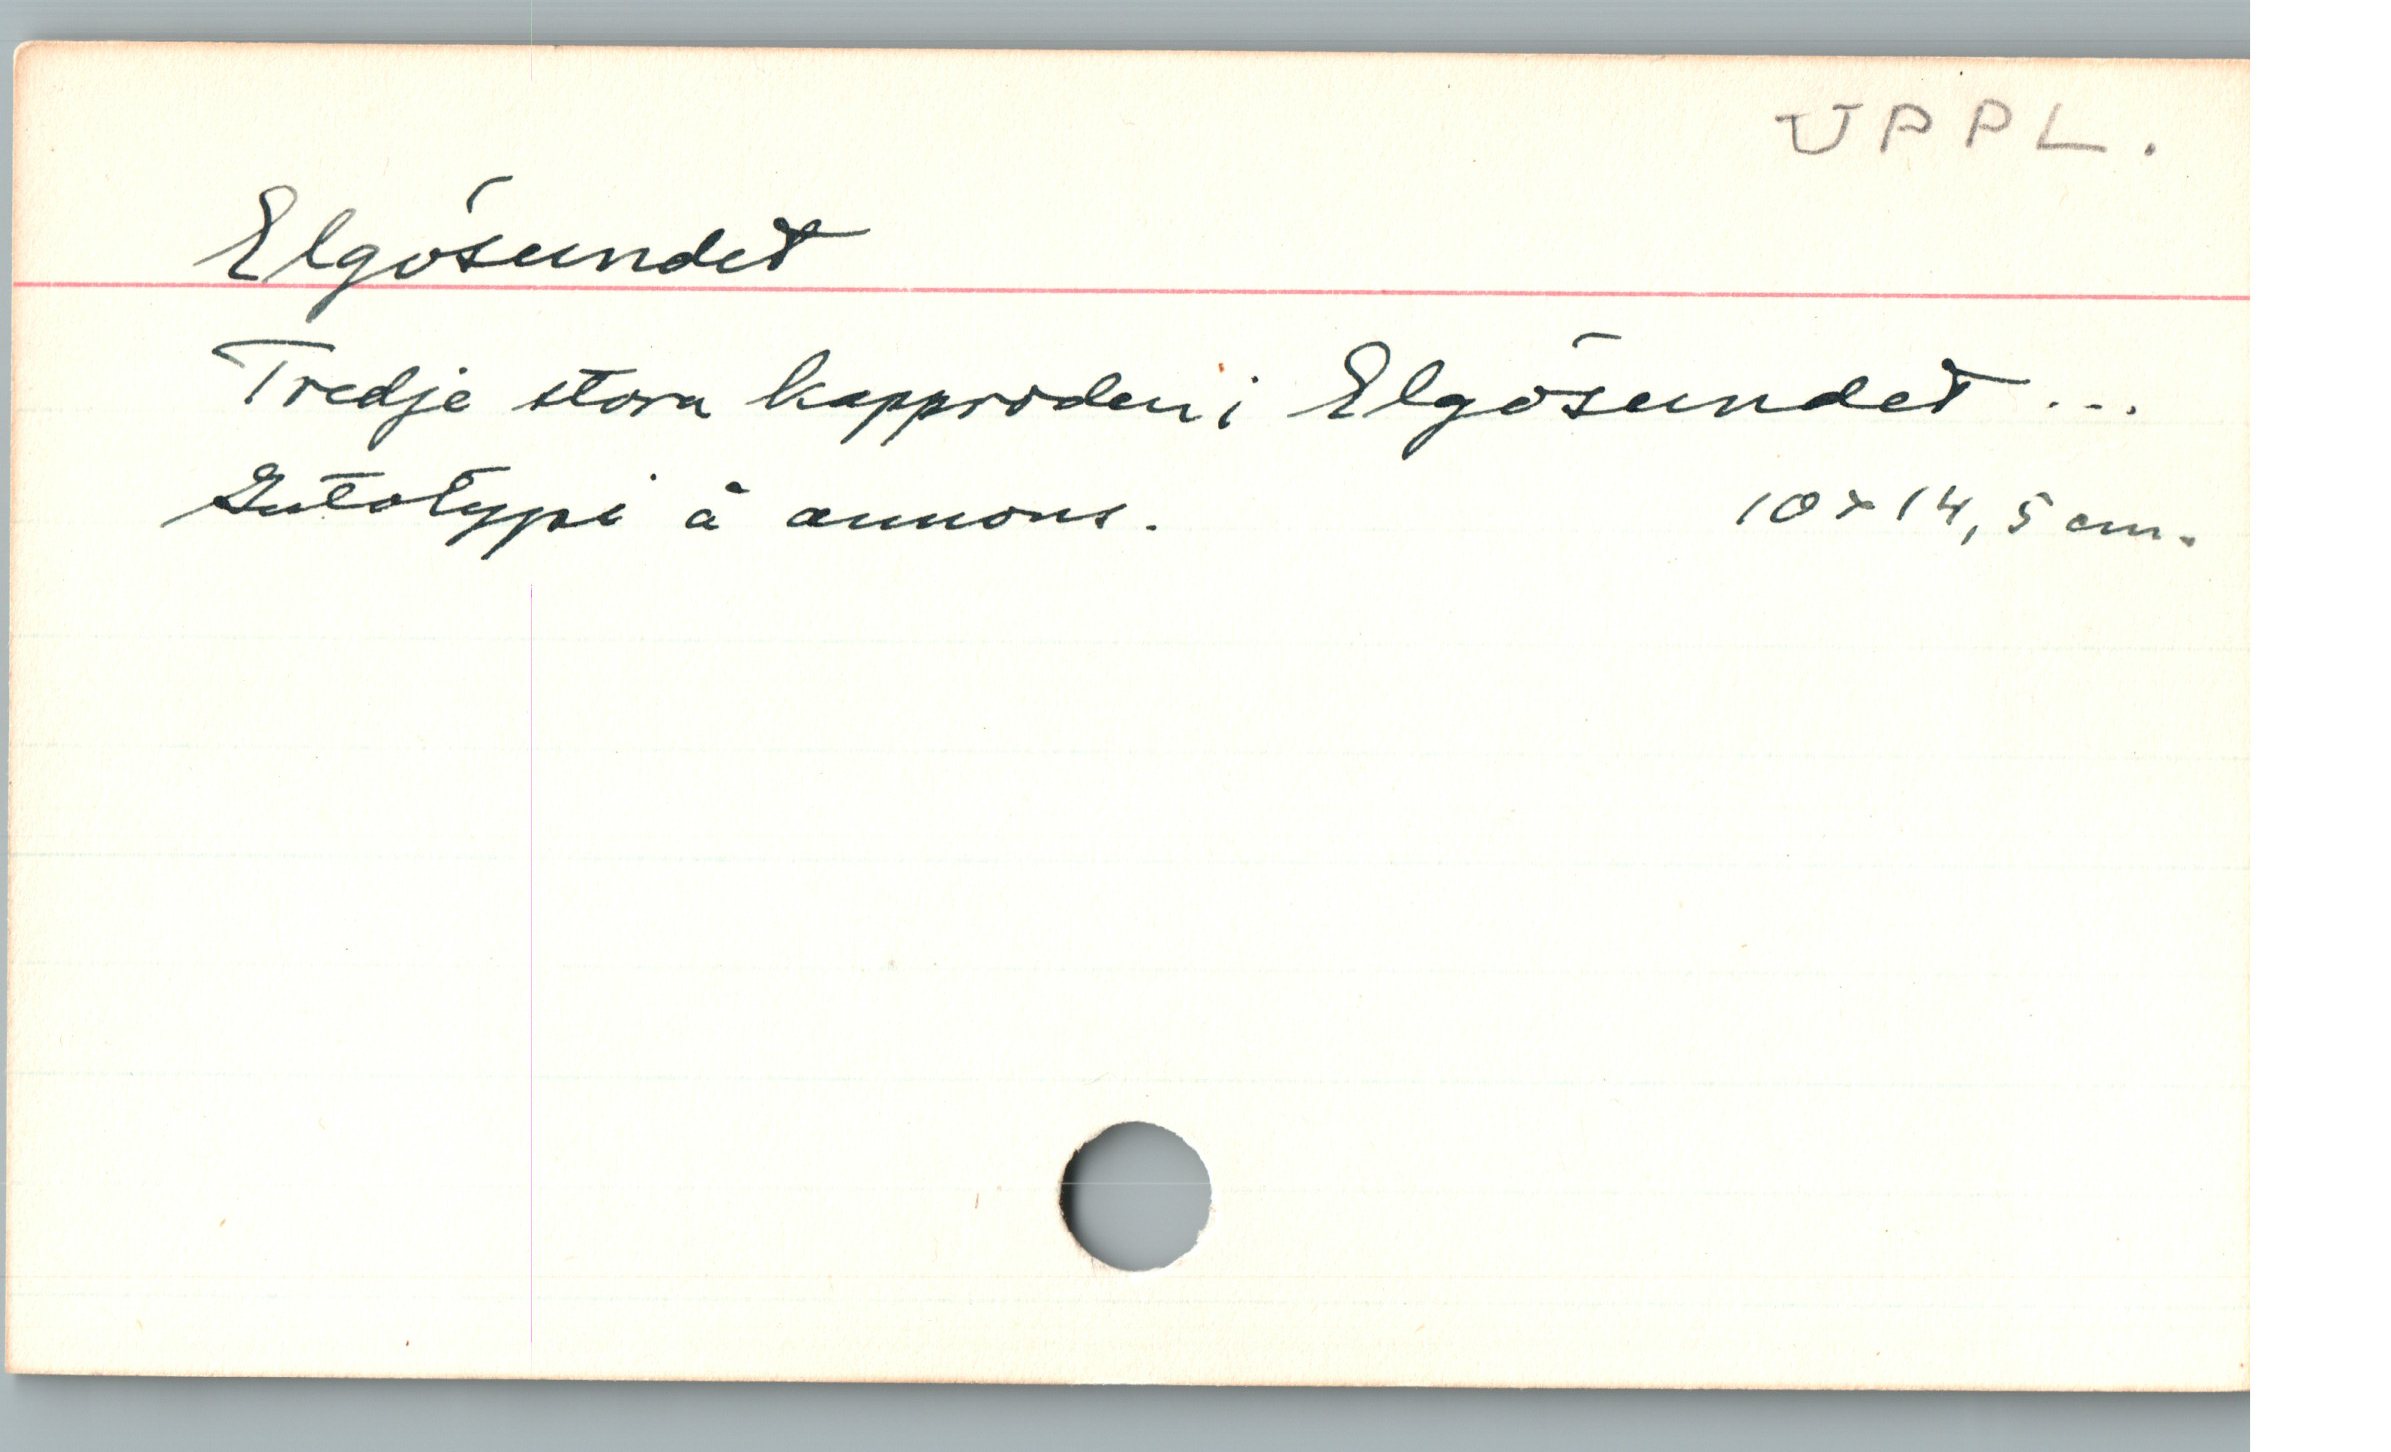 UPPL.
Elgösundet
Tredje stora kapproden i Elgösundet ...
Autotypi å annons. 10 x 14,5 cm.